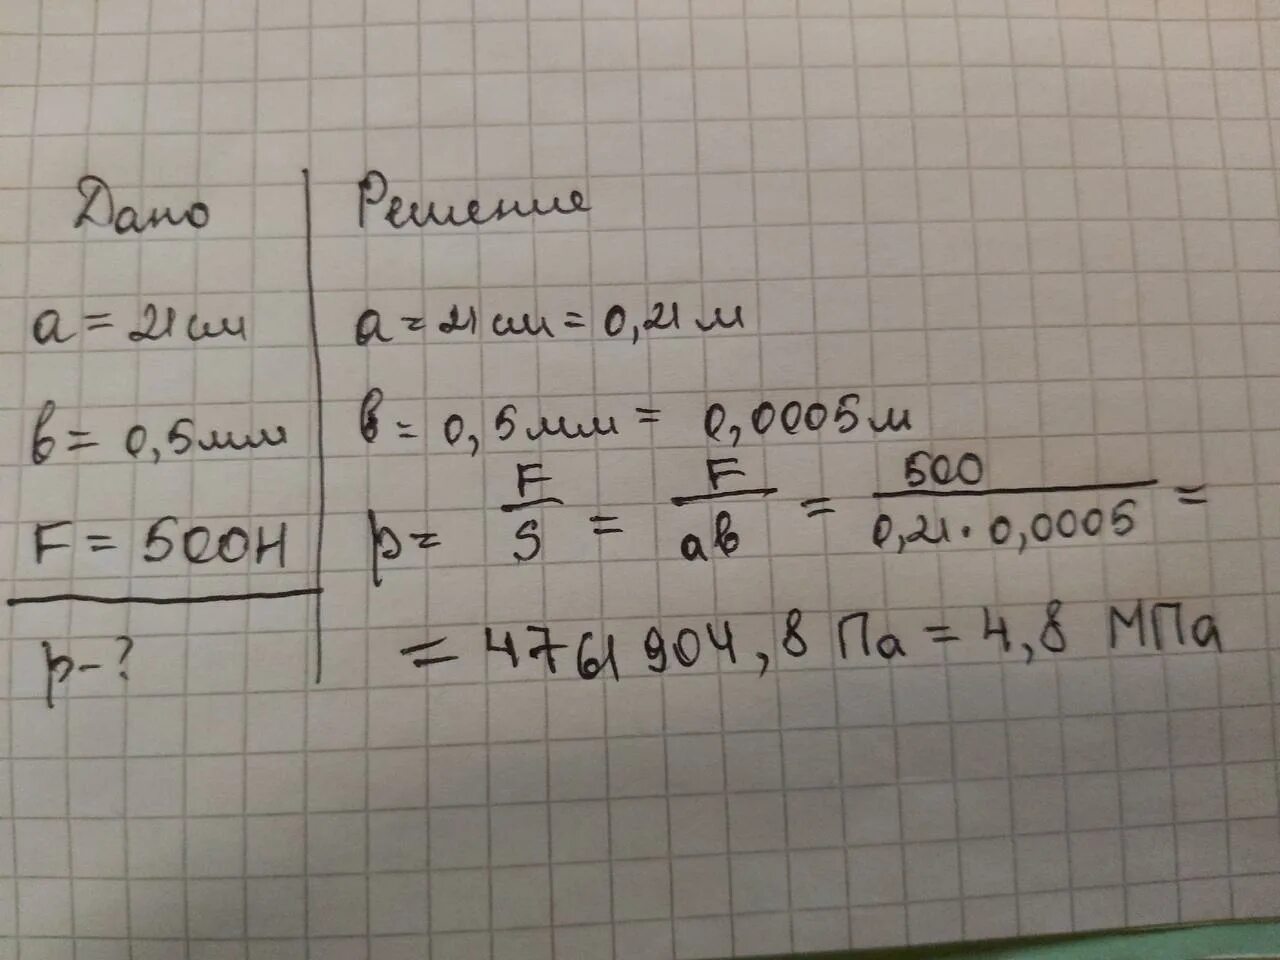 Дано
Решение
a = 21 см
a = 21 см = 0,21 м
b = 0,5 мм
b = 0,5 мм = 0,0005 м
F = 500 Н
p = F/S = F/ab = 500/0,21 · 0,0005 =
p - ?
= 4761904,8 Па = 4,8 МПа